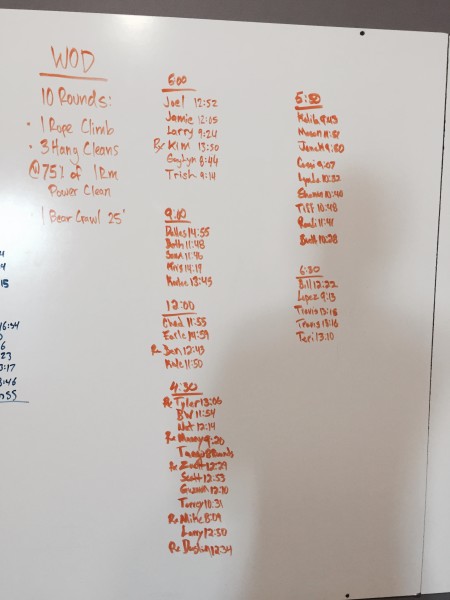 WOD
10 Rounds:
• 1 Rope Climb
• 3 Hang Cleans
@ 75% of 1Rm
Power Clean
1 Bear Crawl 25'
6:00
Joel 12:52
Jamie 12:05
Larry 9:24
Rx Kim 13:50
8:44
Trish 9:14
9:00
Dallas 14:55
Beth 11:48
Sean 11:46
Kris 14:19
13:45
12:00
Chad 11:55
Earle 14:59
Rx Dan 12:43
Kyle 11:50
4:30
Rx Tyler 13:06
BW 11:54
Nat 12:14
Rx Manny 9:20
8 Rounds
Rx Zach 12:29
Scott 12:53
12:10
Torrey 10:31
Rx Mike 8:09
Larry 12:50
Rx Dustin 12:34
5:30
9:43
Mason 11:81
9:50
Craig 9:07
Lynda 10:32
Shannon 10:40
Tiff 10:48
11:41
Beth 10:28
6:30
Bill 12:22
Lopez 9:13
Travis 13:18
Travis 13:16
Teri 13:10
4
4
15
16:54
6
23
3:17
3:46